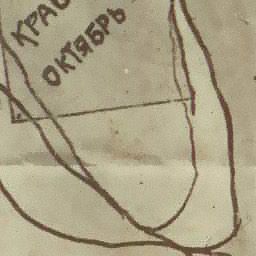 КРАС
ОКТЯБРЬ